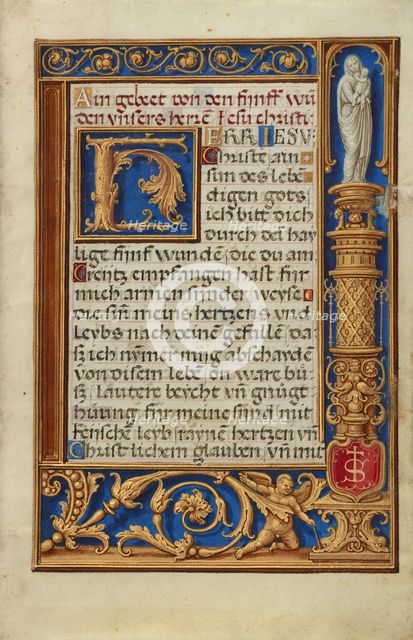 Ain gebeet von den fünff wun
den vnnsers herrē Jesu christi:
HERR IESV:
Christe ain
sun des lebē
digen gots
ich bitt dich
durch dei hay
lige fünf wunden, die du am
Creütz empfangen hast für
mich armen sünder, veyse
die sīn meins hertzens vnd
leybs nach deinē gefallē, da
sz ich nymermer abschayde
von disem lebē on ware bů
sz, lautere beycht vn̄ gnůgt
hůung für meine sünd, mit
kenschē leyb raynē hertzen vn̄
Christlichem glauben, vn̄ mit
IHS
Heritage Images